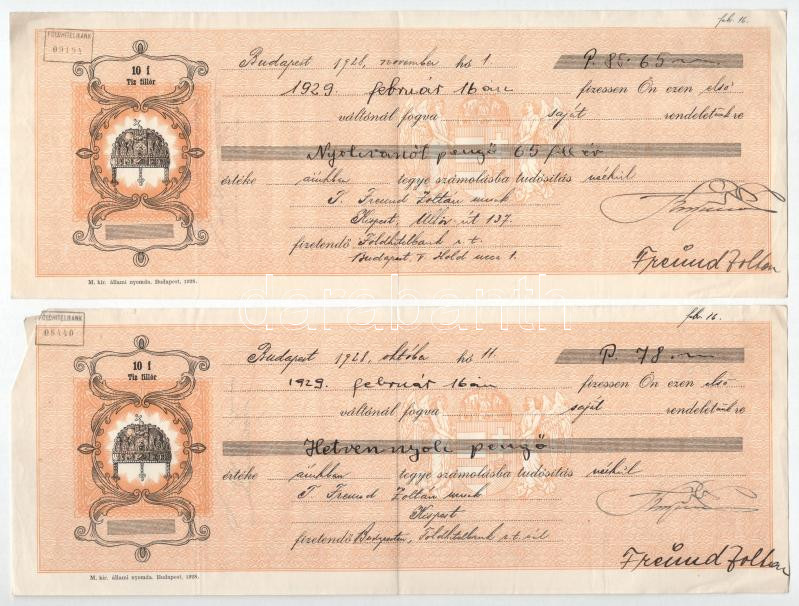 FÖLDHITELBANK
09194
feb. 16.
10 f
Tiz fillér
Budapest 1928, november hó 1.
P. 85.65
1929 február 16án fizessen Ön ezen első
váltónál fogva saját rendeletünkre
Nyolcvanöt pengő 65 fillér
értéke árukban tegye számolásba tudósítás nélkül
T. Freund Zoltán urnak
Kispest, Üllői-út 137.
fizetendő Földhitelbank r.t.
Budapest, V Hold ucca 1.
Freund Zoltán
M. kir. állami nyomda. Budapest, 1928.
darabanth
FÖLDHITELBANK
08440
feb. 16.
10 f
Tiz fillér
Budapest 1928, október hó 11.
P. 78.
1929. február 16án fizessen Ön ezen első
váltónál fogva saját rendeletünkre
Hetvennyolc pengő
értéke árukban tegye számolásba tudósítás nélkül
T. Freund Zoltán urnak
Kispest
fizetendő Budapesten, Földhitelbank r.t.nál
Freund Zoltán
M. kir. állami nyomda. Budapest, 1928.